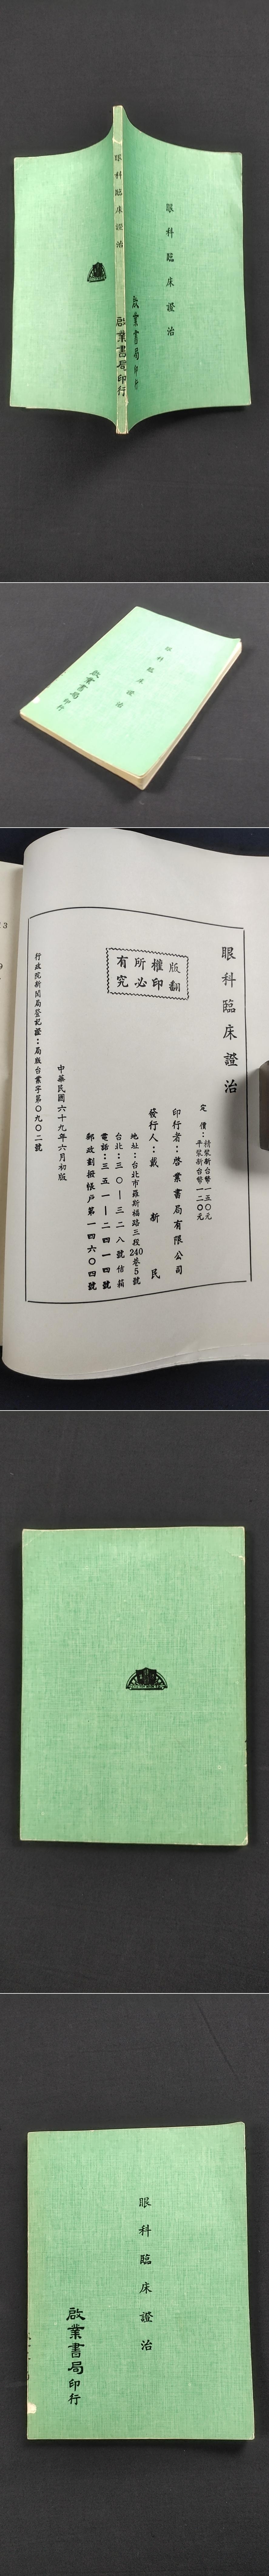 眼科臨床證治
啟業書局印行
眼科臨床證治
啟業書局印行
眼科臨床證治
啟業書局印行
眼科臨床證治
版權所有
翻印必究
定價：精裝新台幣一五〇元
平裝新台幣一二〇元
印行者：啓業書局有限公司
發行人：戴新民
地址：台北市羅斯福路三段240巷5號
台北：三〇—三二八號信箱
電話：三五一—二四一四號
郵政劃撥帳戶第一四六〇四號
中華民國六十九年六月初版
行政院新聞局登記證：局版台業字第〇九〇二號
眼科臨床證治
啟業書局印行